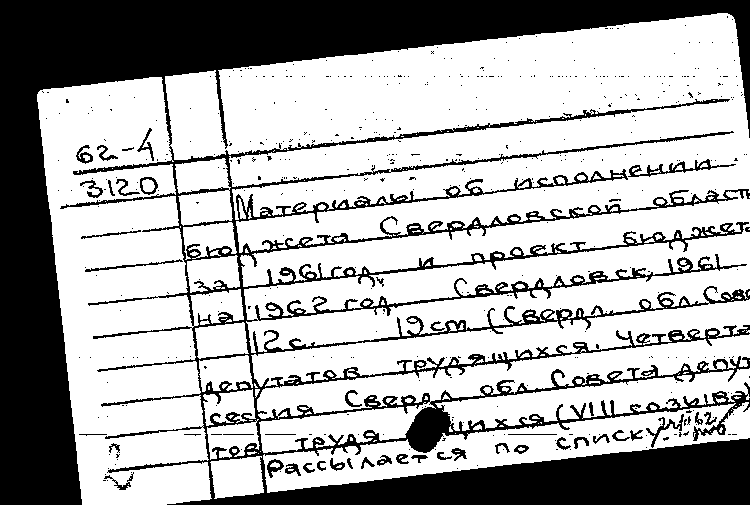 62-4
3120
Материалы об исполнении
бюджета Свердловской област
за 1961 год и проект бюджета
на 1962 год. Свердловск, 1961
12 с. 19 cm (Свердл. обл. Сове
депутатов трудящихся. Четверта
сессия Свердл. обл. Совета депу
тов трудя щихся (VIII созыва)
Рассылается по списку.